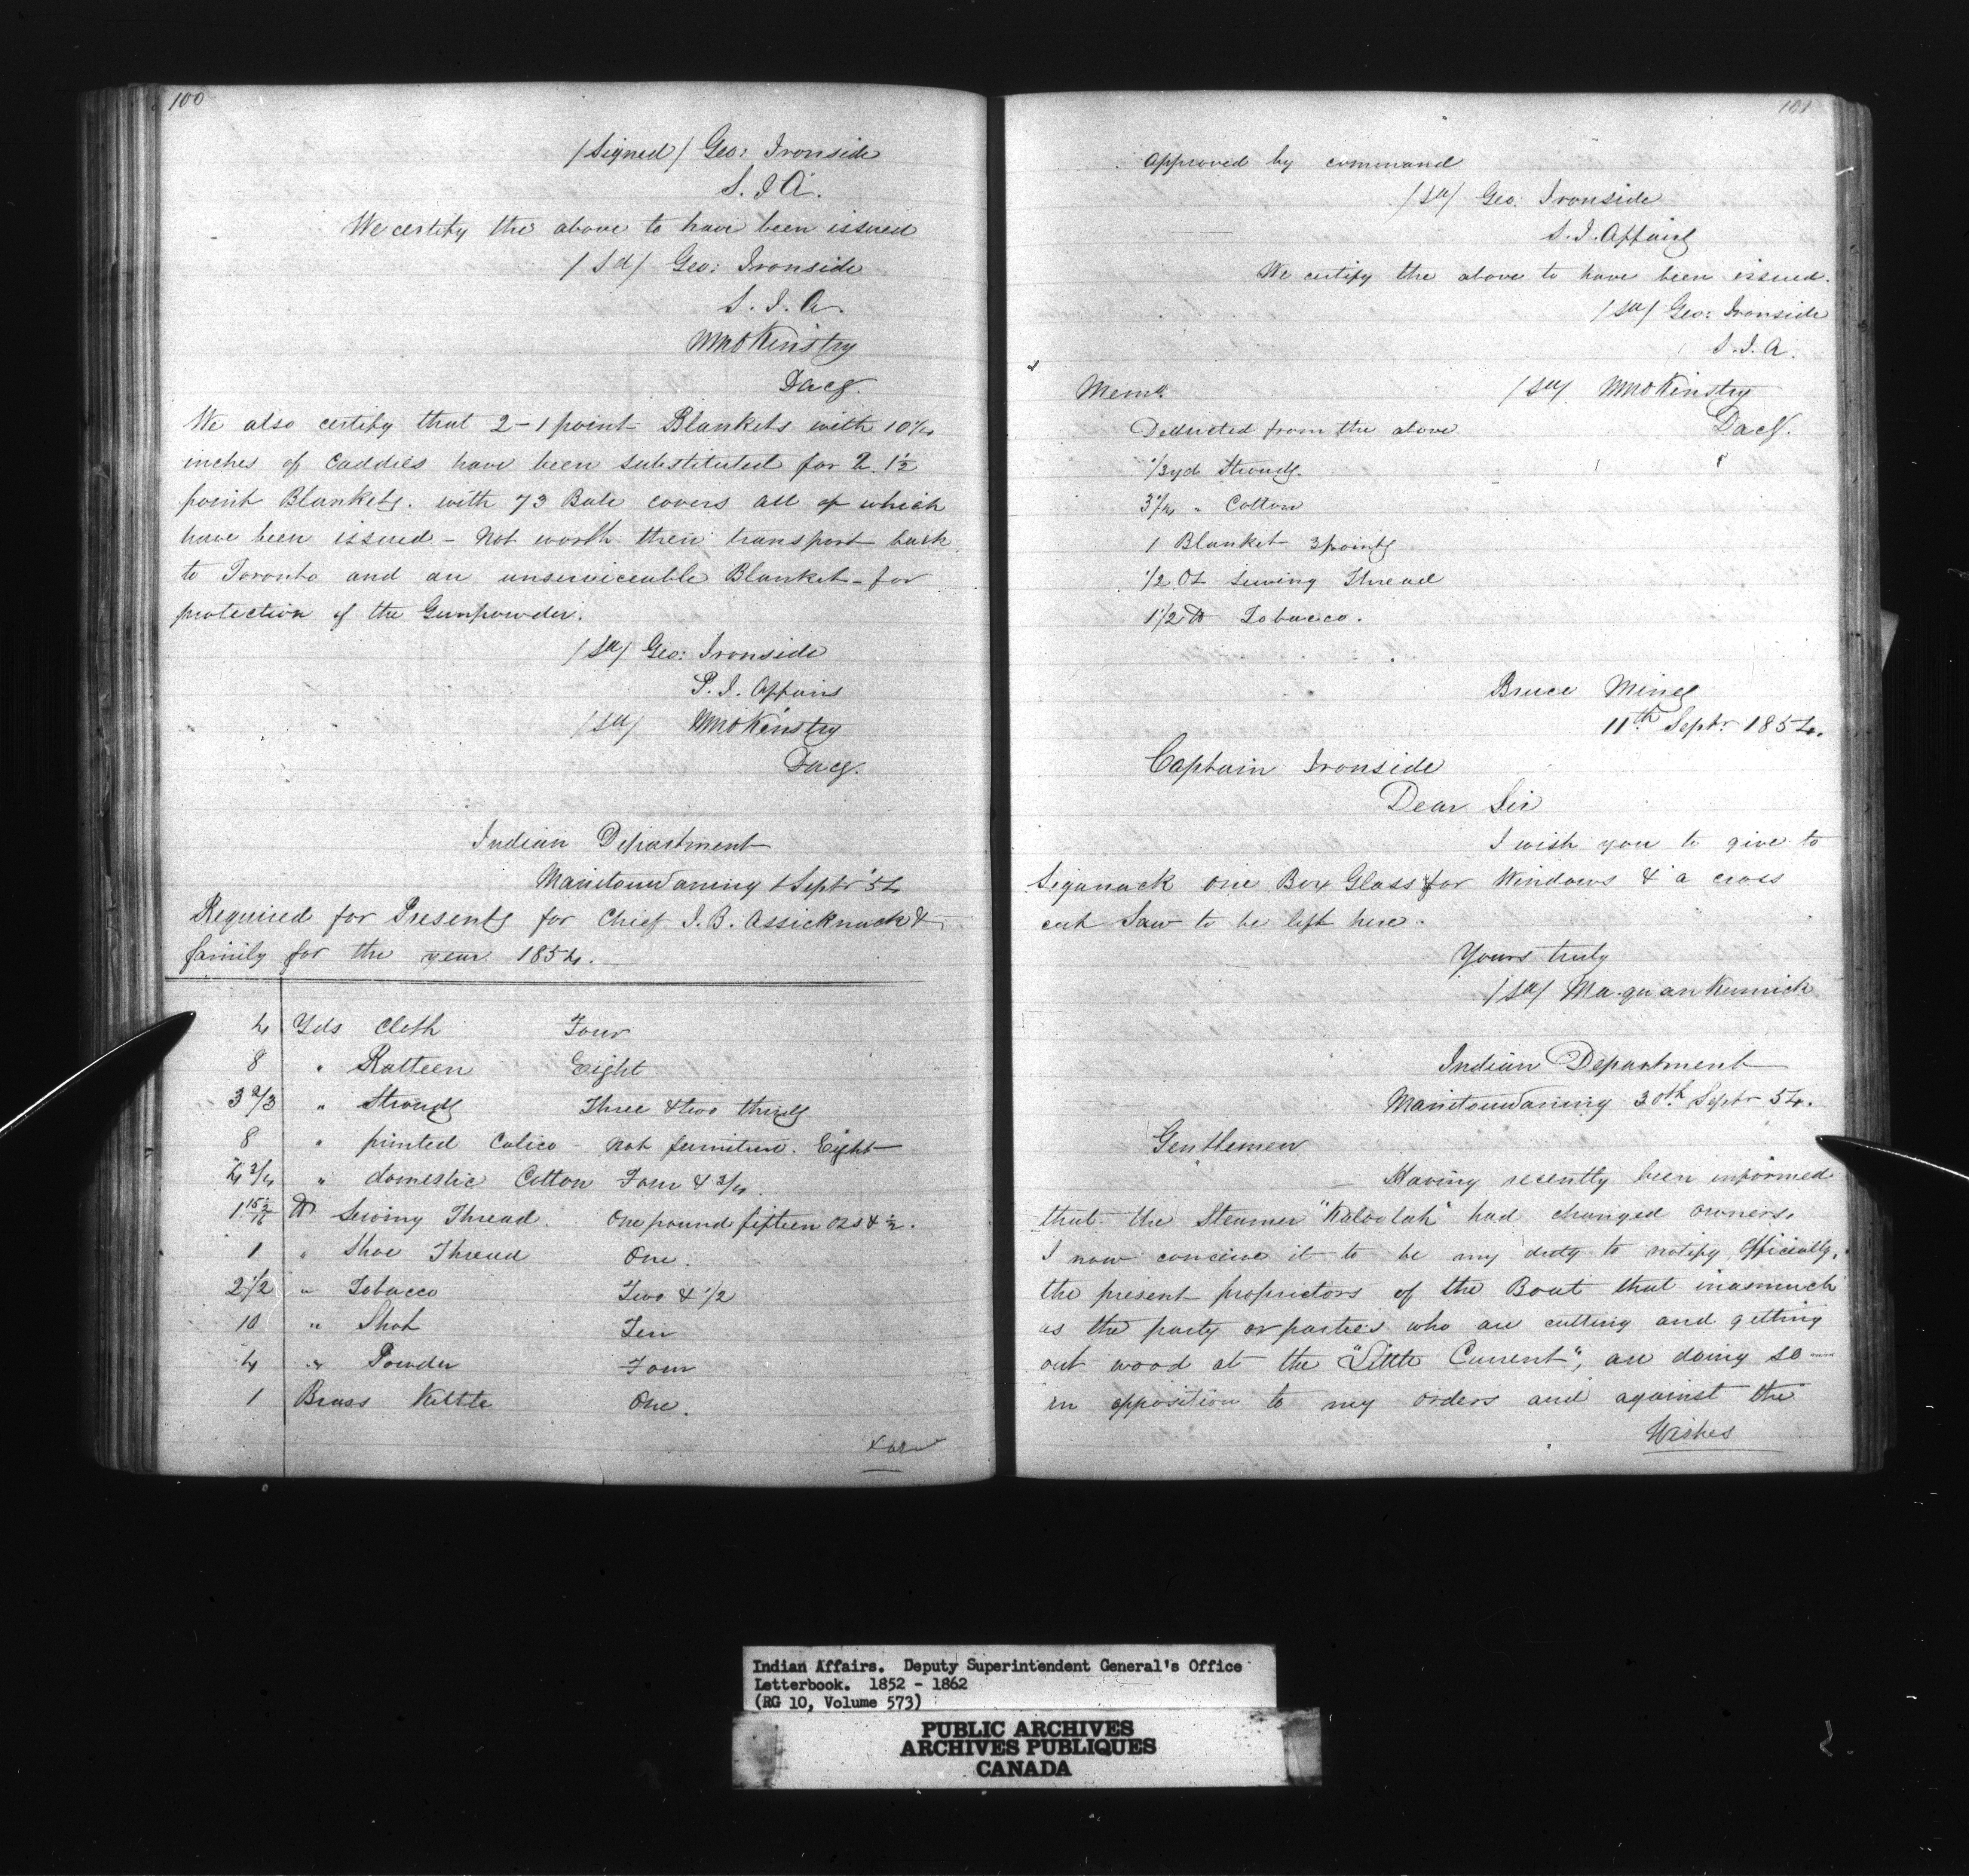 100
/Signed/ Geo: Ironside
S. I. A.
We certify the above to have been issued
/Sd/ Geo: Ironside
S. I. A.
WmoKinstry
Dacg.
We also certify that 2-1 point Blankets with 10/4
inches of Caddies have been substituted for 2. 1½
point Blankets. with 73 Bale covers all of which
have been issued - not worth their transport back
to Toronto and an unserviceable Blanket - for
protection of the Gunpowder.
/Sd/ Geo: Ironside
S. I. Affairs
/Sd/ WmoKinstry
Dacg.
Indian Department
Manitouwaning Septr 54
Required for Presents for Chief J. B. Assicknack &
family for the year 1854.
4 Yds Cloth Four
8 " Ratteen Eight
3 2/3 " Strouds Three & two thirds
8 " printed Calico - not furniture. Eight
4 3/4 " domestic Cotton Four & 3/4.
1 15½/16 lb Sewing Thread. One pound fifteen ozs & ½.
1 " Shoe Thread One.
2 1/2 " Tobacco Two & 1/2
10 " Shot Ten
4 " Powder Four
1 Brass Kettle One.
101
Approved by command
/Sd/ Geo: Ironside
S. I. Affairs
We certify the above to have been issued.
/Sd/ Geo: Ironside
S. I. A.
Memo. /Sd/ WmoKinstry
Deducted from the above Dacg.
1/3 yd Strouds.
3 1/4 " Cotton
1 Blanket 3 points
1/2 Oz Sewing Thread
1 1/2 lb Tobacco.
Bruce Mines
11th Septr 1854.
Captain Ironside
Dear Sir
I wish you to give to
Siganack one Box Glass for Windows & a cross
cut Saw to be left here.
Yours truly
/Sd/ Ma-quan Kennick
Indian Department
Manitouwaning 30th Septr 54.
Gentlemen
Having recently been informed
that the Steamer "Kaloolah" had changed owners,
I now conceive it to be my duty to notify Officially,
the present proprietors of the Boat that inasmuch
as the party or parties who are cutting and getting
out wood at the "Little Current", are doing so
in opposition to my orders and against the
Wishes
Indian Affairs. Deputy Superintendent General's Office
Letterbook. 1852 - 1862
(RG 10, Volume 573)
PUBLIC ARCHIVES
ARCHIVES PUBLIQUES
CANADA